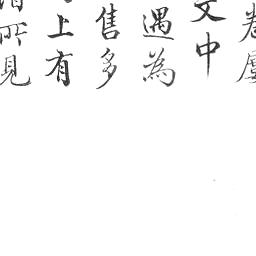 卷屢
文中
遇為
售多
上有
所見